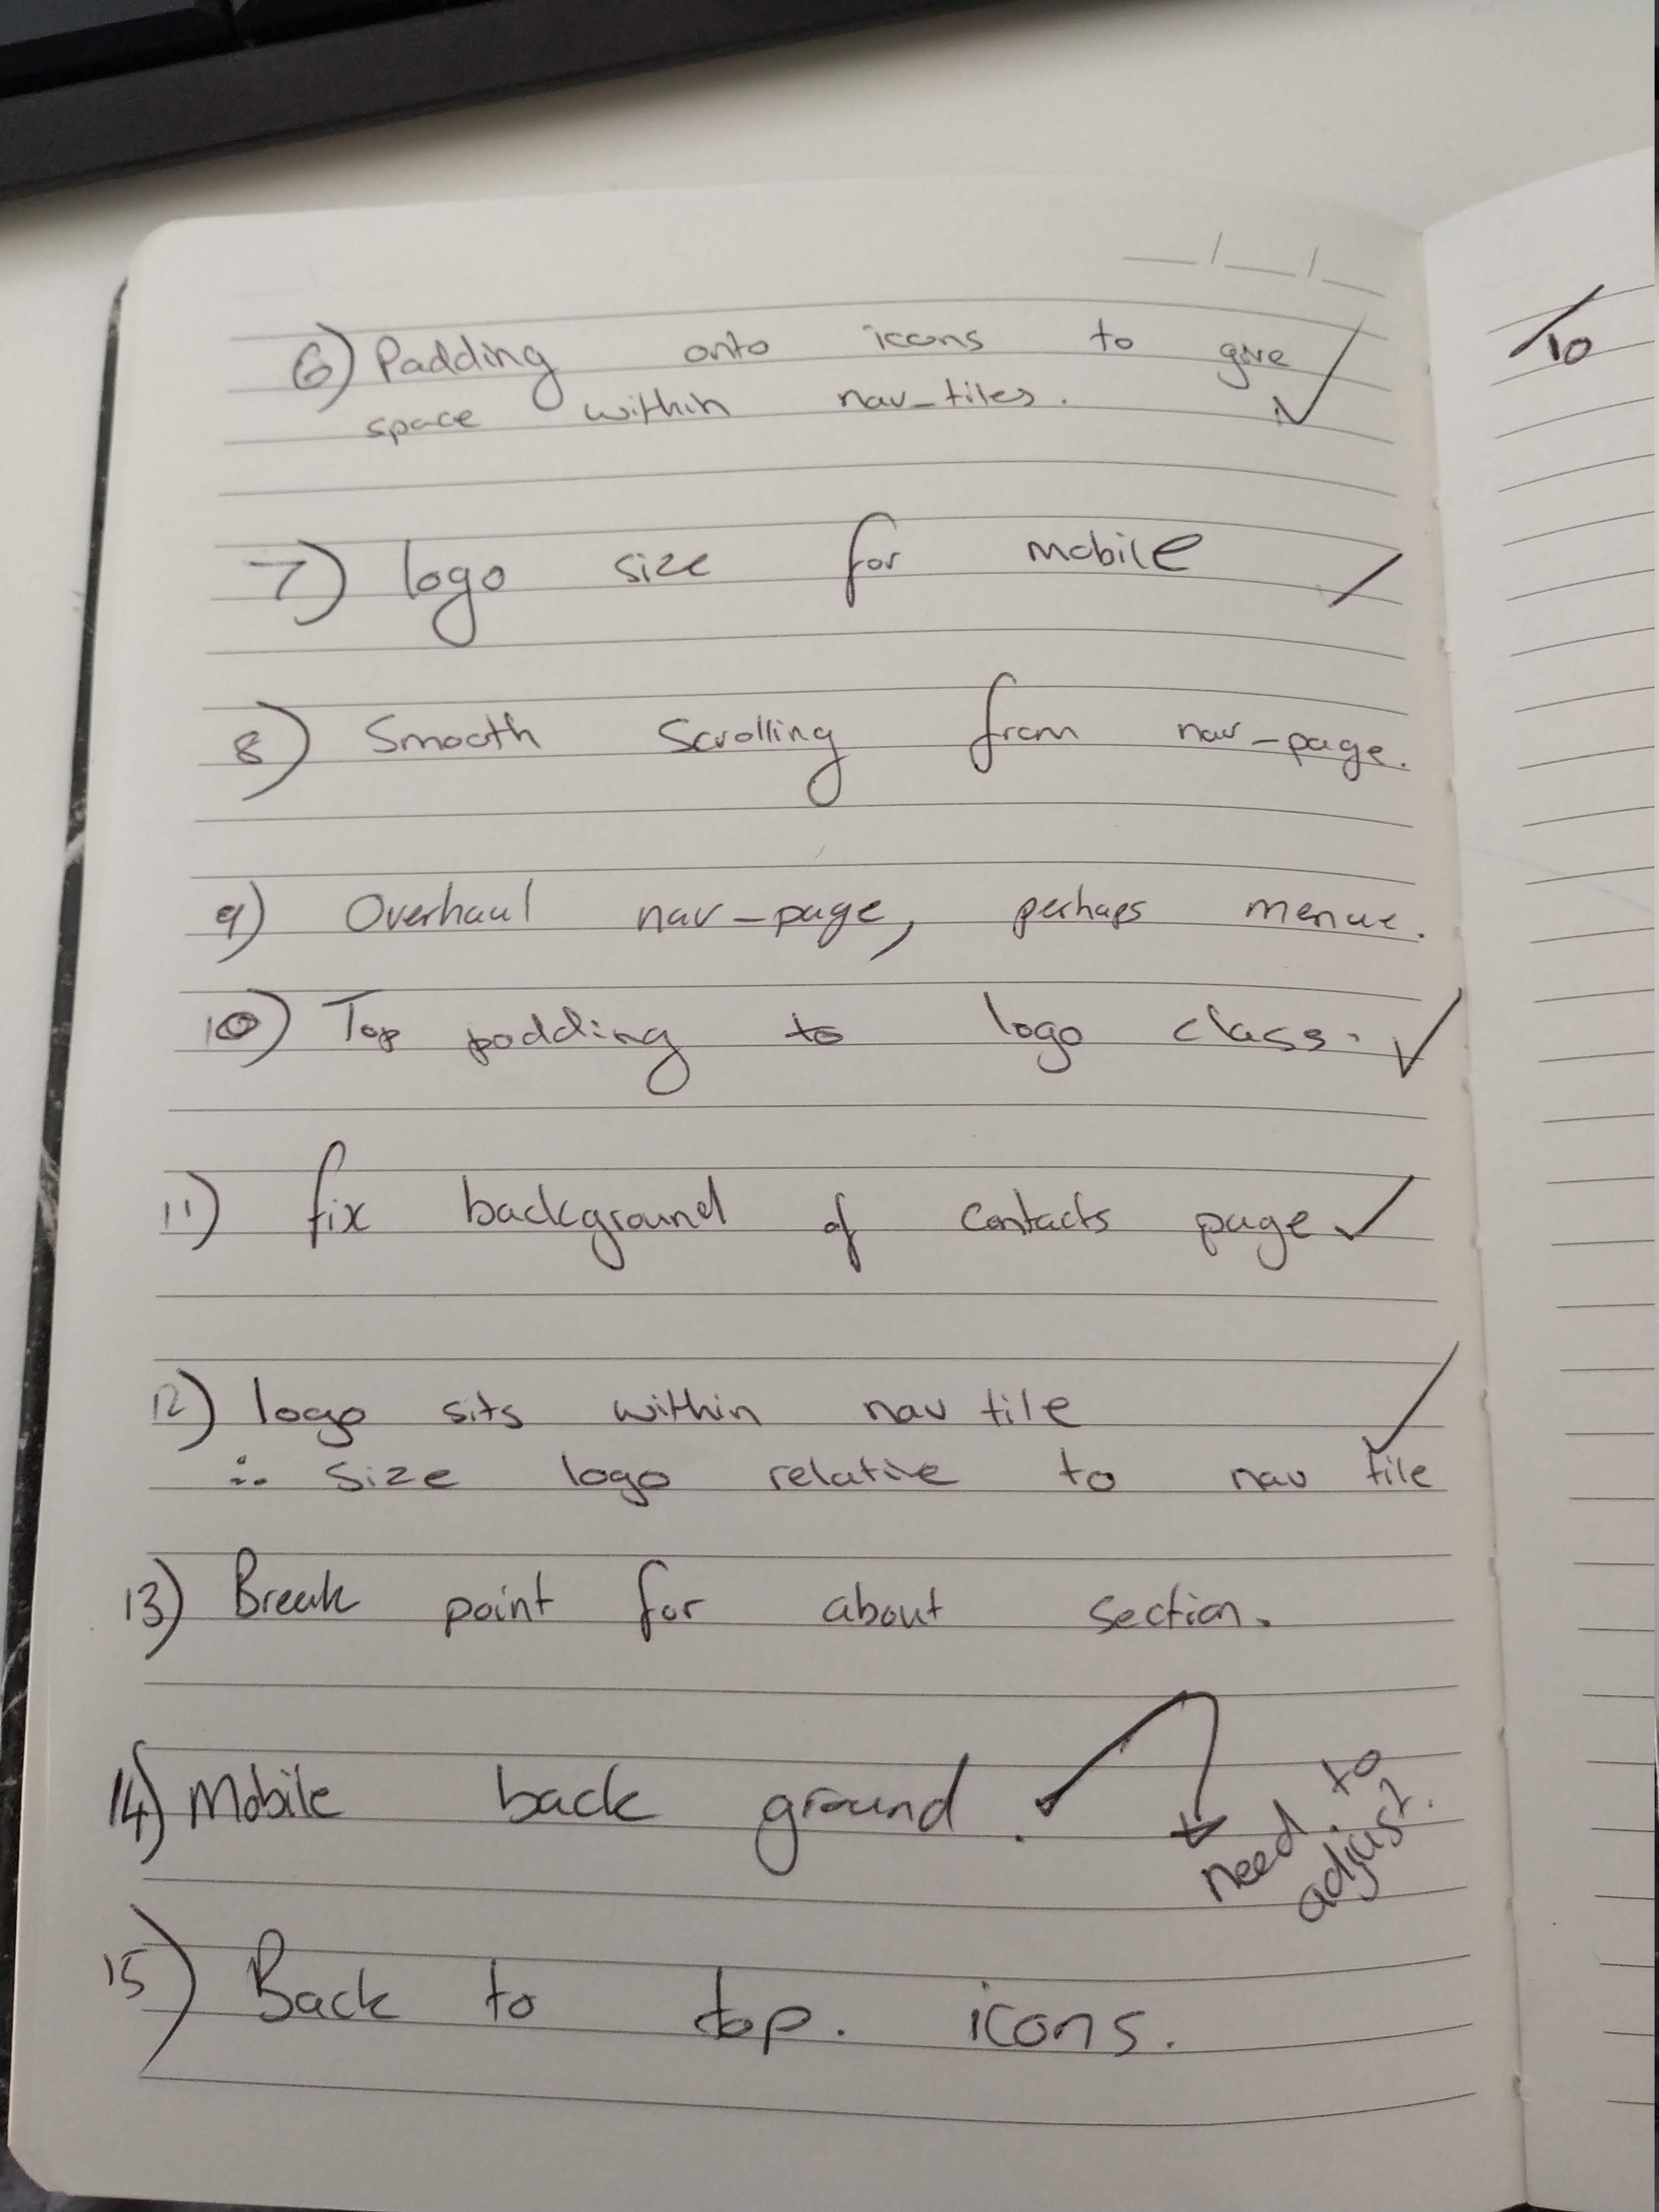 6) Padding onto icons to give
space within nav_tiles.
7) logo size for mobile
8) Smooth Scrolling from nav-page.
9) Overhaul nav-page, perhaps menue.
10) Top padding to logo class.
11) fix background of contacts page
12) logo sits within nav tile
∴ size logo relative to nav tile
13) Break point for about section.
14) Mobile back ground.
need to
adjust.
15) Back to top. icons.
To